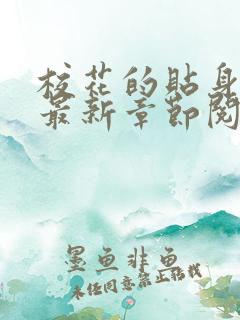 校花的贴身
最新章节阅
墨鱼非鱼
未经同意禁止转载